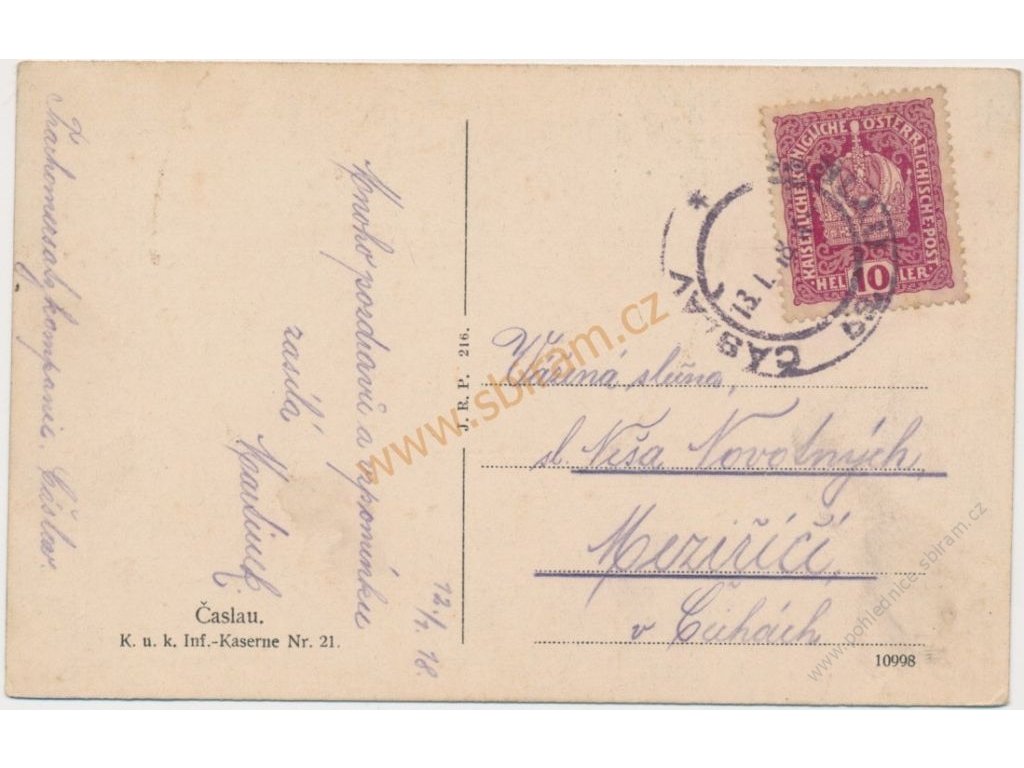 Mnoho pozdravů a vzpomínku
zasílá
12./1. 18.
kompanie. Čáslav.
Časlau.
K. u. k. Inf.-Kaserne Nr. 21.
J. R. P. 216.
KAISERLICHE KÖNIGLICHE ÖSTERREICHISCHE POST
10
HELLER
ČÁSLAV
13. I. 18
Vážená slečna,
sl. Néša Novotných,
Meziříčí,
v Čechách
10998
www.sbiram.cz
www.pohlednice-sbiram.cz